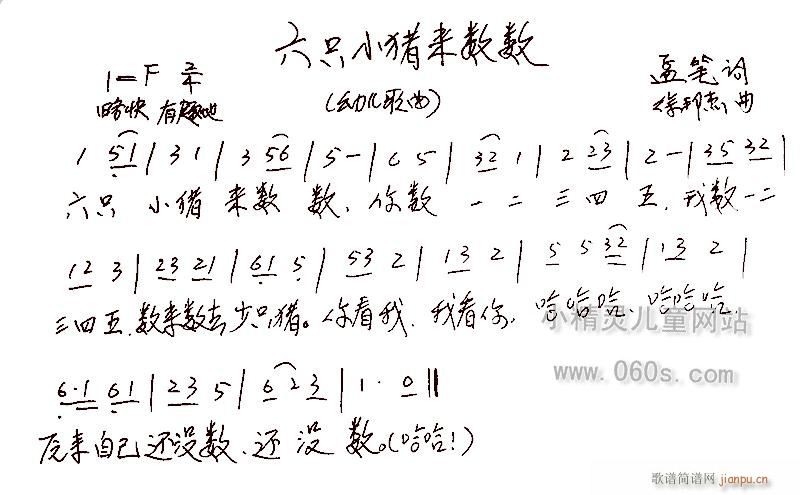 六只小猪来数数
1=F 2/4
孟笔词
略快 有趣地
(幼儿歌曲)
徐邦杰曲
1 51 | 31 | 3 56 | 5 - | 6 5 | 32 1 | 2 23 | 2 - | 35 32 |
六只 小猪 来数 数、你数 一 二 三 四 五, 我数一二
12 3 | 23 21 | 61 5 | 53 2 | 13 2 | 5 5 32 | 13 2 |
三四五,数来数去少只猪。你看我,我看你,哈哈哈、哈哈哈,
6·1 61 | 23 5 | 6 2 3 | 1· 0 ‖
原来自己还没数、还 没 数。(哈哈!)
小精灵儿童网站
www.060s.com
歌谱简谱网 jianpu.cn